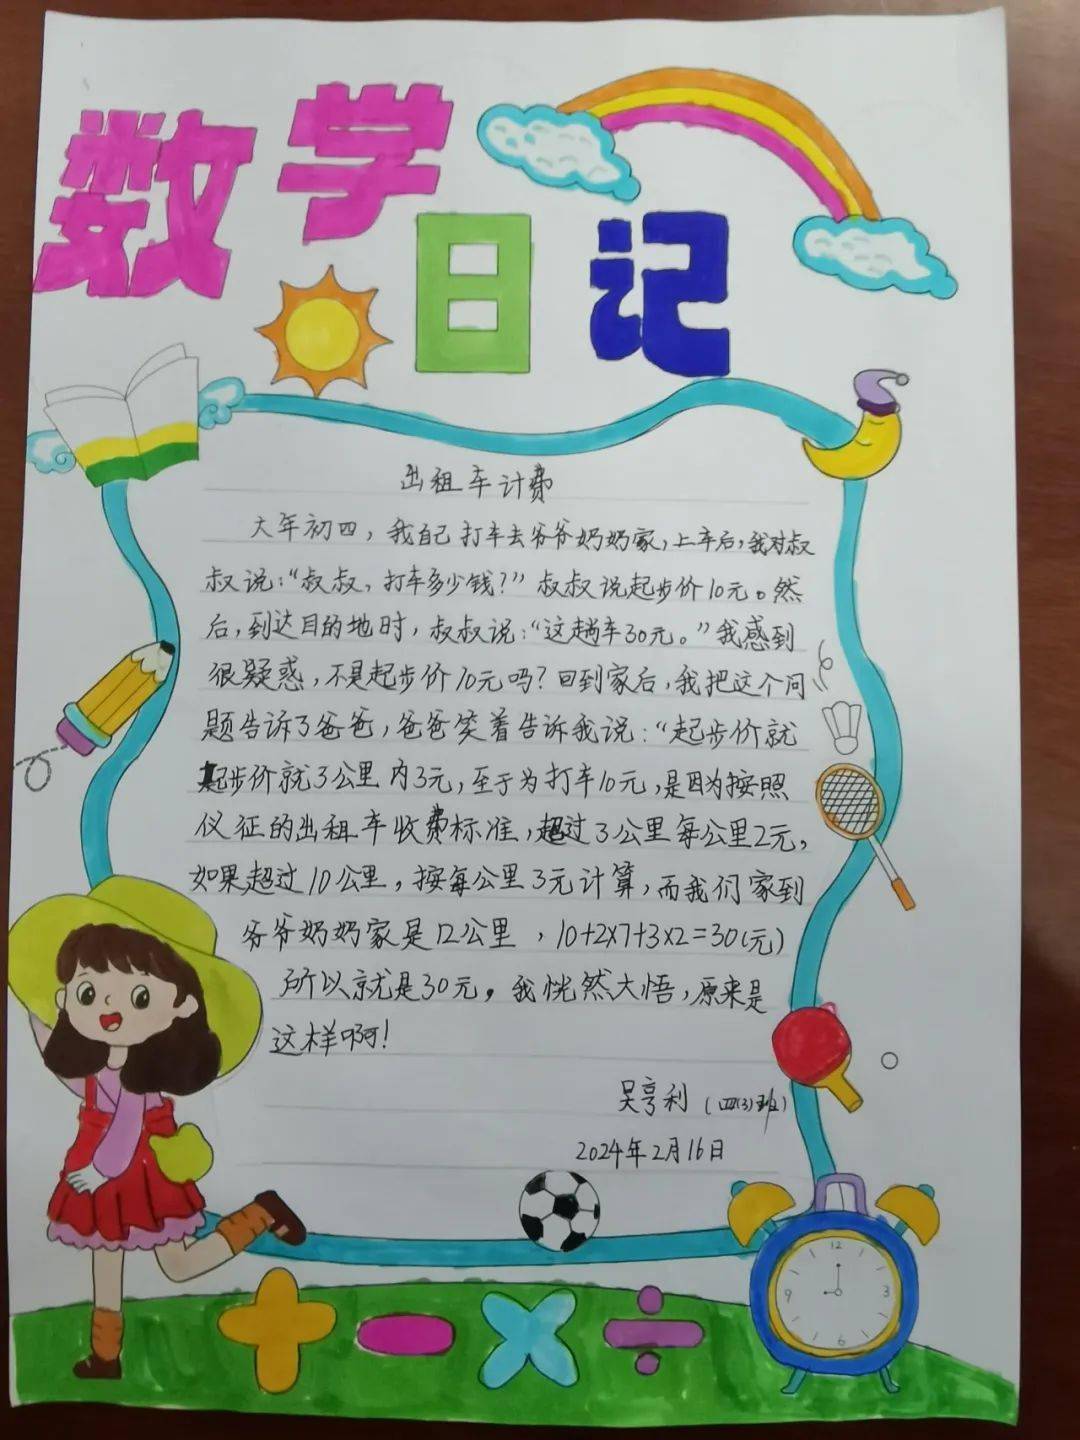 数学
日记
出租车计费
大年初四，我自己打车去爷爷奶奶家，上车后，我对叔
叔说：“叔叔，打车多少钱？”叔叔说起步价10元。然
后，到达目的地时，叔叔说：“这趟车30元。”我感到
很疑惑，不是起步价10元吗？回到家后，我把这个问
题告诉了爸爸，爸爸笑着告诉我说：“起步价就
起步价就3公里内3元，至于为打车10元，是因为按照
仪征的出租车收费标准，超过3公里每公里2元，
如果超过10公里，按每公里3元计算，而我们家到
爷爷奶奶家是12公里，10+2×7+3×2=30(元)
所以就是30元。我恍然大悟，原来是
这样啊！
吴亨利（四(3)班）
2024年2月16日
12
9 3
6